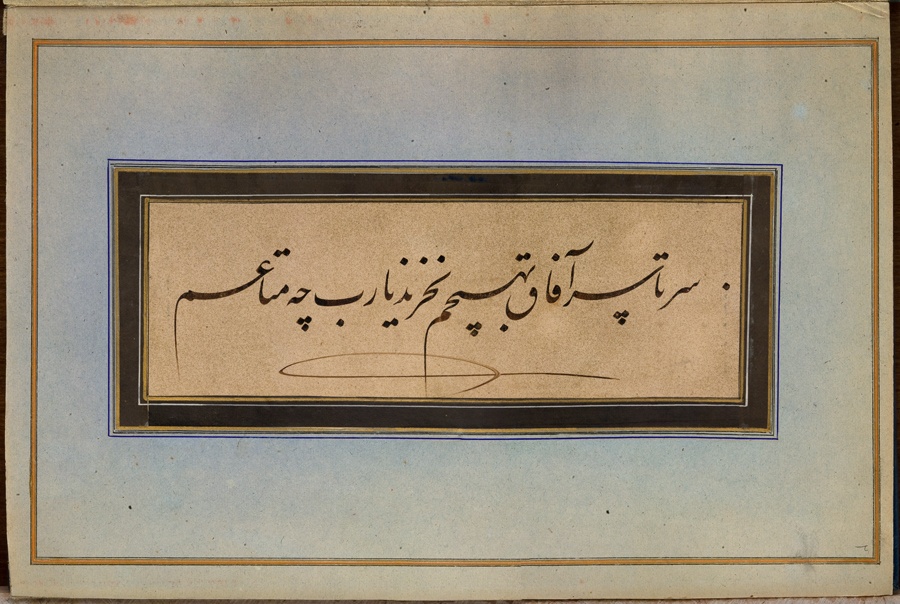 سر تا سر آفاق بهیچم نخرند یا رب چه متاعم